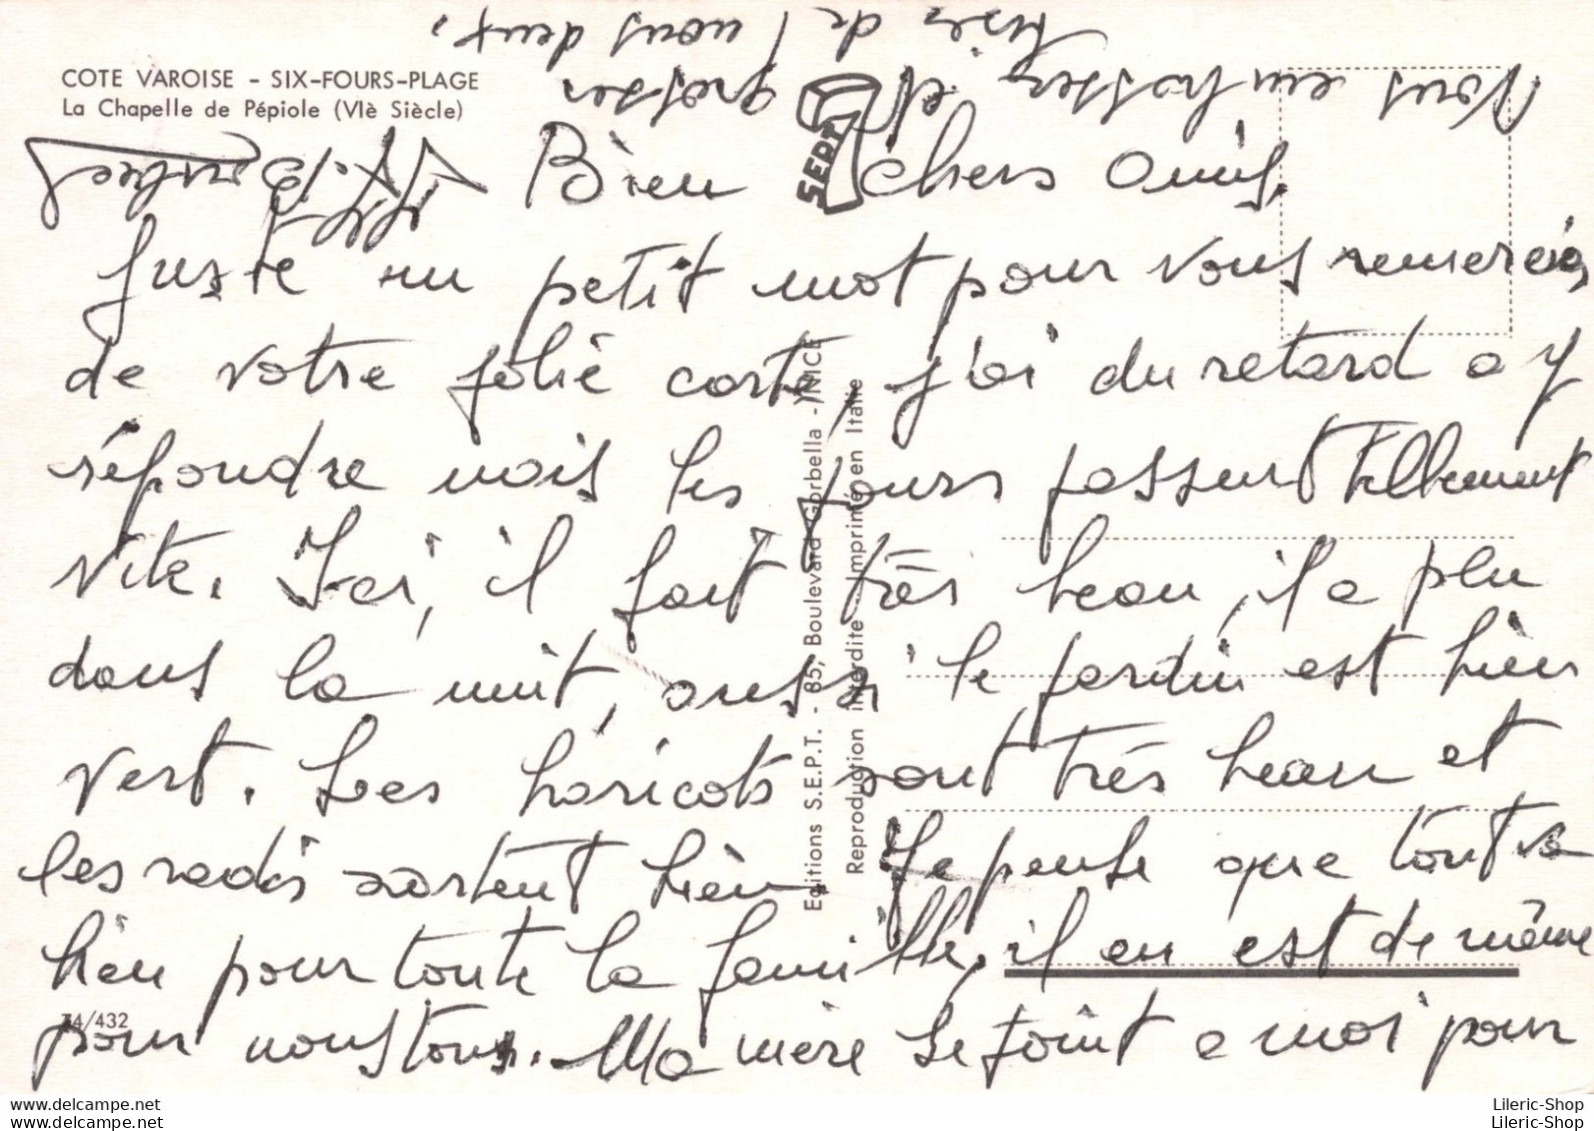 COTE VAROISE - SIX-FOURS-PLAGE
La Chapelle de Pépiole (VIè Siècle)
SEPT
Bien chers Amis.
Juste un petit mot pour vous remercier
de votre jolie carte, j'ai du retard a y
répondre mais les jours passent tellement
vite. Ici, il fait très beau, il a plu
dans la nuit, aussi le jardin est bien
vert. Les haricots sont très beau et
les radis sortent bien. Je pense que tout va
bien pour toute la famille, il en est de même
pour nous tous. Ma mère se joint a moi pour
Vous embrasser et grosses
bises de nous deux.
Editions S.E.P.T. - 85, Boulevard Gorbella - NICE
Reproduction interdite - Imprimé en Italie
74/432
Lileric-Shop
Lileric-Shop
delcampe.net
delcampe.net